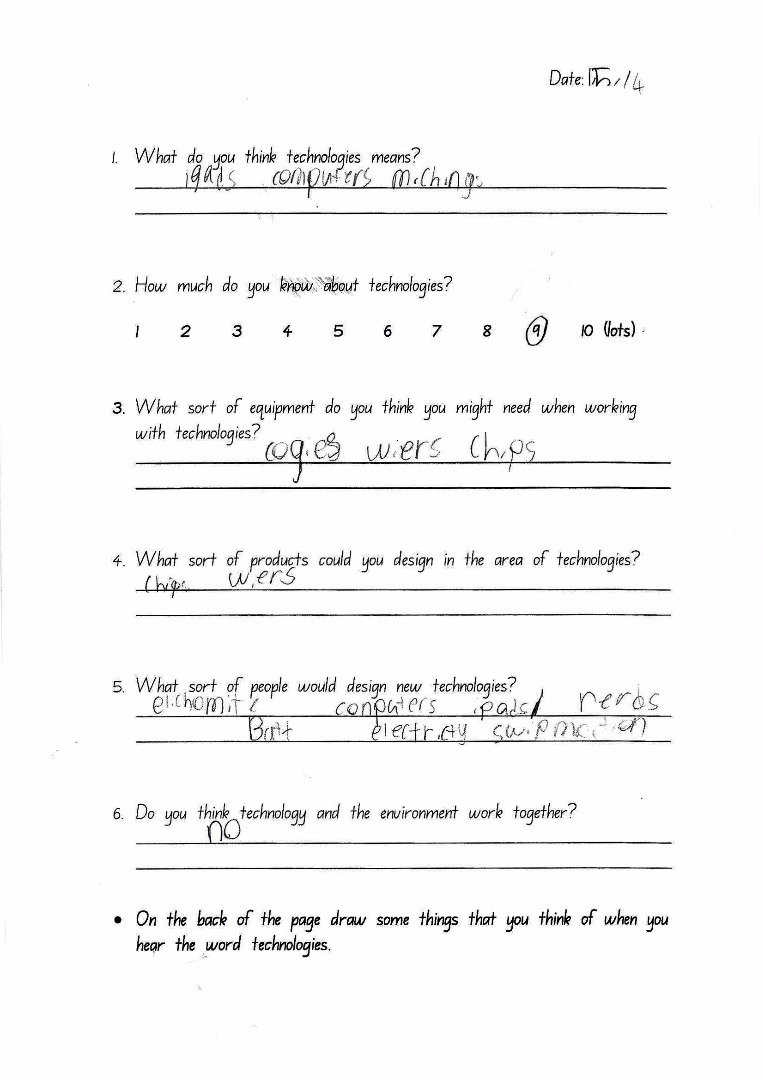 Date: 15/14
1. What do you think technologies means?
computers michings
2. How much do you know about technologies?
1 2 3 4 5 6 7 8 9 10 (lots)
3. What sort of equipment do you think you might need when working
with technologies?
wiers Chips
4. What sort of products could you design in the area of technologies?
Chips wiers
5. What sort of people would design new technologies?
computers ipads nerds
6. Do you think technology and the environment work together?
no
• On the back of the page draw some things that you think of when you
hear the word technologies.